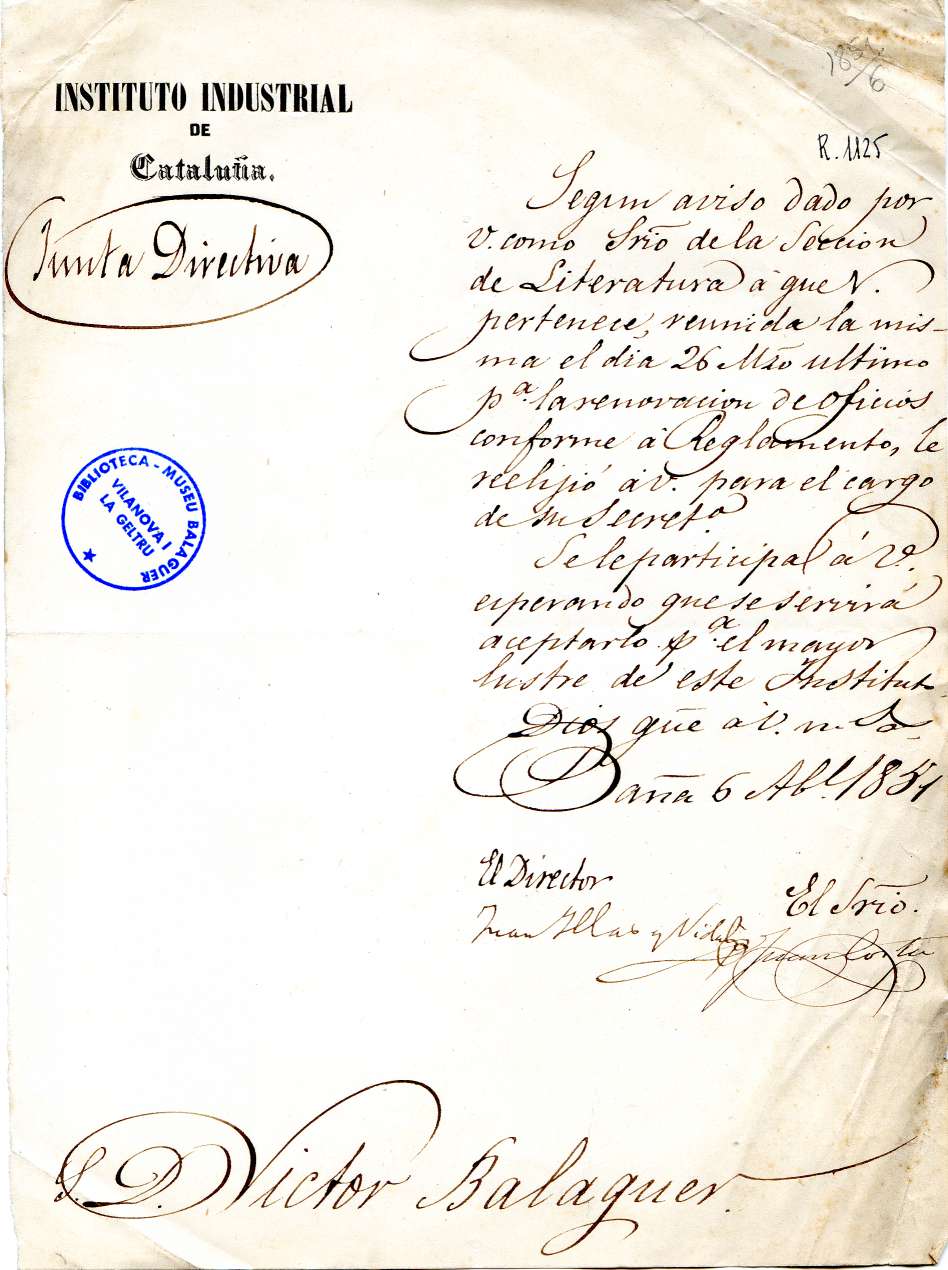 1851/6
R. 1125
INSTITUTO INDUSTRIAL
DE
Cataluña.
Junta Directiva
Segun aviso dado por
V. como Srio de la Seccion
de Literatura á que V.
pertenece, reunida la mis-
ma el dia 26 Mzo ultimo
pª. la renovacion de oficios
conforme á Reglamento, le
reelijió á V. para el cargo
de su Secreto
Se le participa á V.
esperando que se servirá
aceptarlo pª. el mayor
lustre de este Institut
Dios gue á V. m. a.
Bañá 6 Abl. 1851
El Director
Juan Illas y Vidal
El Srio.
Juan Cortada
S. D. Victor Balaguer.
BIBLIOTECA - MUSEU BALAGUER
VILANOVA I
LA GELTRU